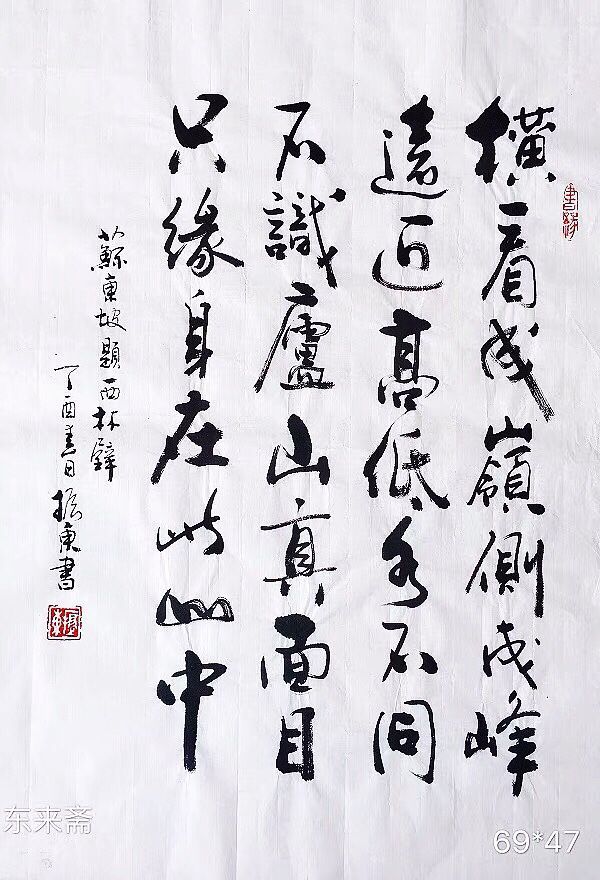 橫看成嶺側成峰
遠近高低各不同
不識廬山真面目
只緣身在此山中
蘇東坡題西林壁
丁酉春日振東書
东来斋
69*47